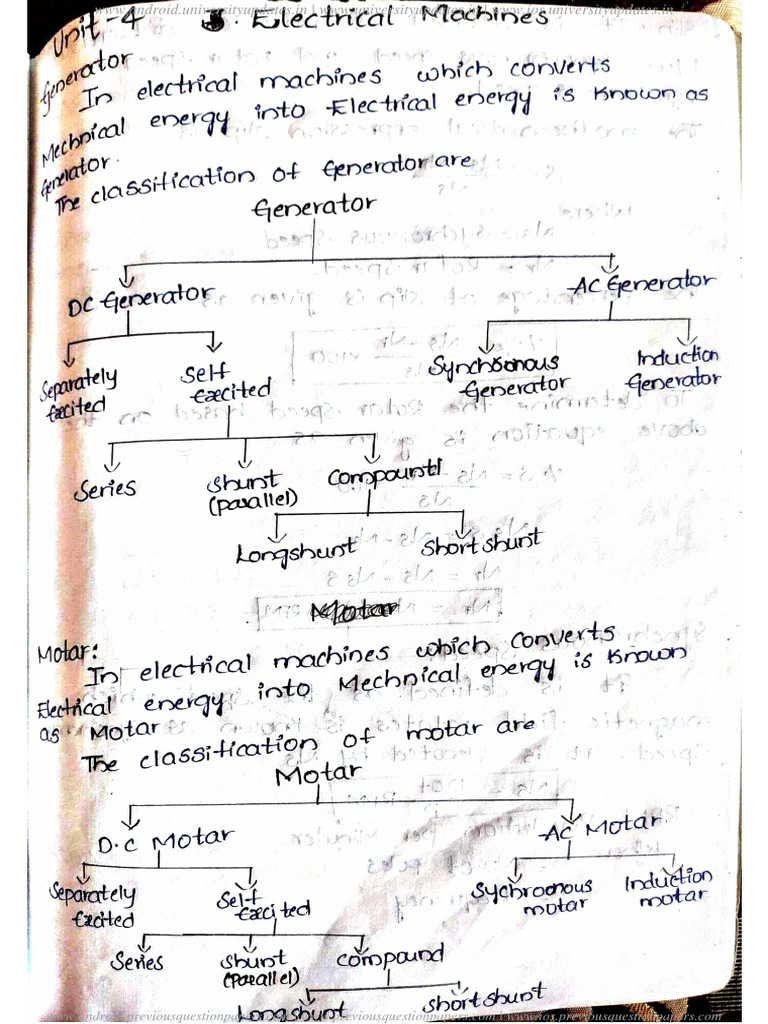 www.android.universityupdates.in | www.universityupdates.in | www.ios.universityupdates.in
Unit-4
Electrical Machines
Generator
In electrical machines which converts
Mechnical energy into Electrical energy is known as
Generator.
The classification of Generator are
Generator
DC Generator
AC Generator
Separately Excited
Self Excited
Synchronous Generator
Induction Generator
Series
Shunt (parallel)
Compound
Longshunt
Short shunt
Motar
Motar:
In electrical machines which converts
Electrical energy into Mechnical energy is known
as Motar
The classification of motar are
Motar
D.C Motar
AC Motar
Separately Excited
Self Excited
Sychroonous motar
Induction motar
Series
Shunt (parallel)
compound
Longshunt
short shunt
www.android.previousquestionpapers.com | www.previousquestionpapers.com | www.ios.previousquestionpapers.com